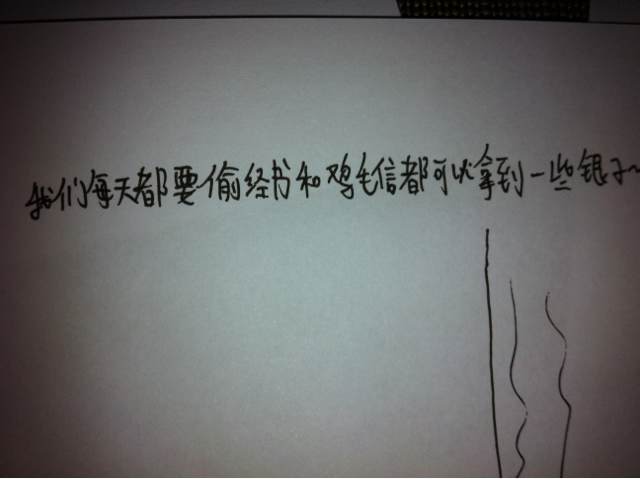 我们每天都要偷经书和鸡毛信都可以拿到一些银子~